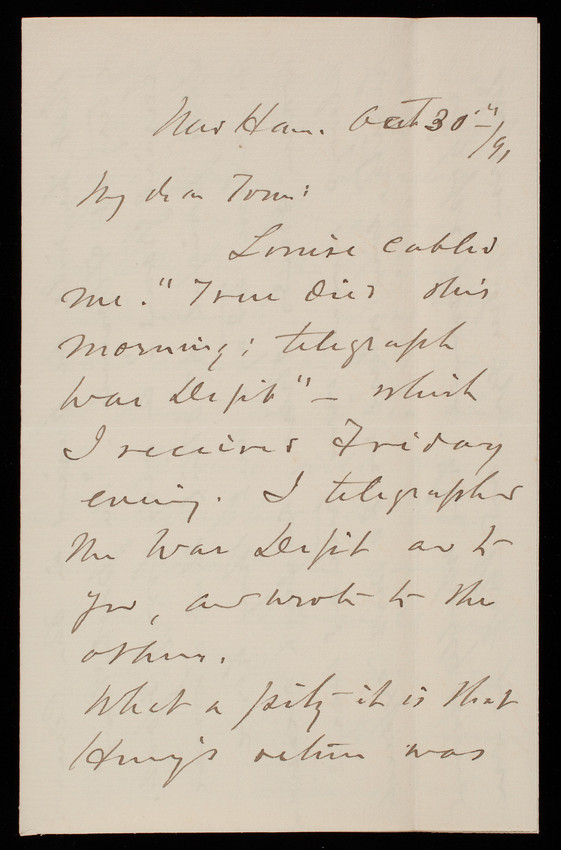 New Hav. Oct 30"/91
My dear Tom:
Louise cabled
me. "True died this
morning; telegraph
War Dep't" – which
I received Friday
evening. I telegraphed
the War Dep't as to
you, and wrote to the
others.
What a pity it is that
Henry's return was